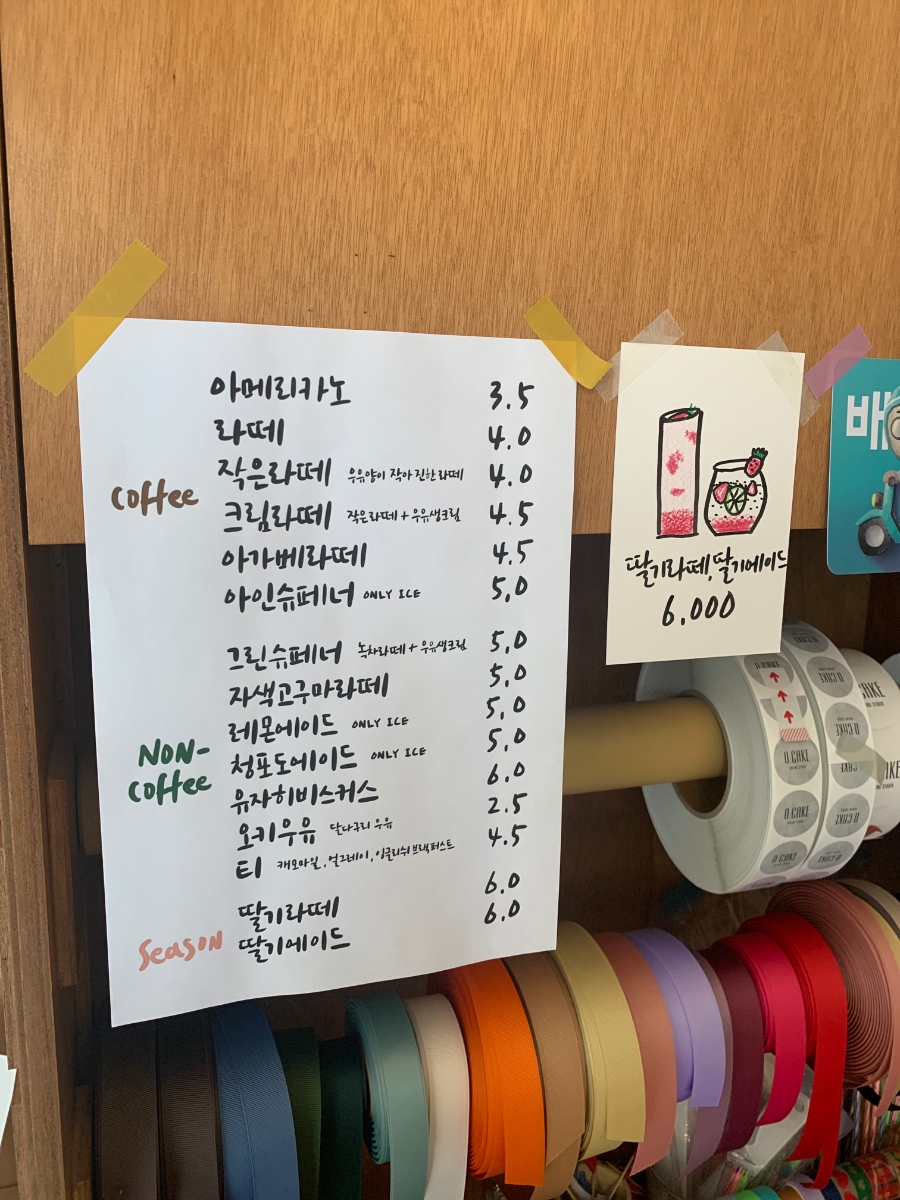 아메리카노 3.5
라떼 4.0
작은라떼 우유양이 작아 진한 라떼 4.0
coffee
크림라떼 작은라떼 + 우유생크림 4.5
아가베라떼 4.5
아인슈페너 ONLY ICE 5.0
그린슈페너 녹차라떼 + 우유생크림 5.0
자색고구마라떼 5.0
레몬에이드 ONLY ICE 5.0
NON-
coffee
청포도에이드 ONLY ICE 5.0
유자히비스커스 6.0
오키우유 달나구리 우유 2.5
티 캐모마일, 얼그레이, 잉글리쉬브랙퍼스트 4.5
Season
딸기라떼 6.0
딸기에이드 6.0
딸기라떼, 딸기에이드
6.000
배
D CAKE
D CAKE
D CAKE
D CAKE